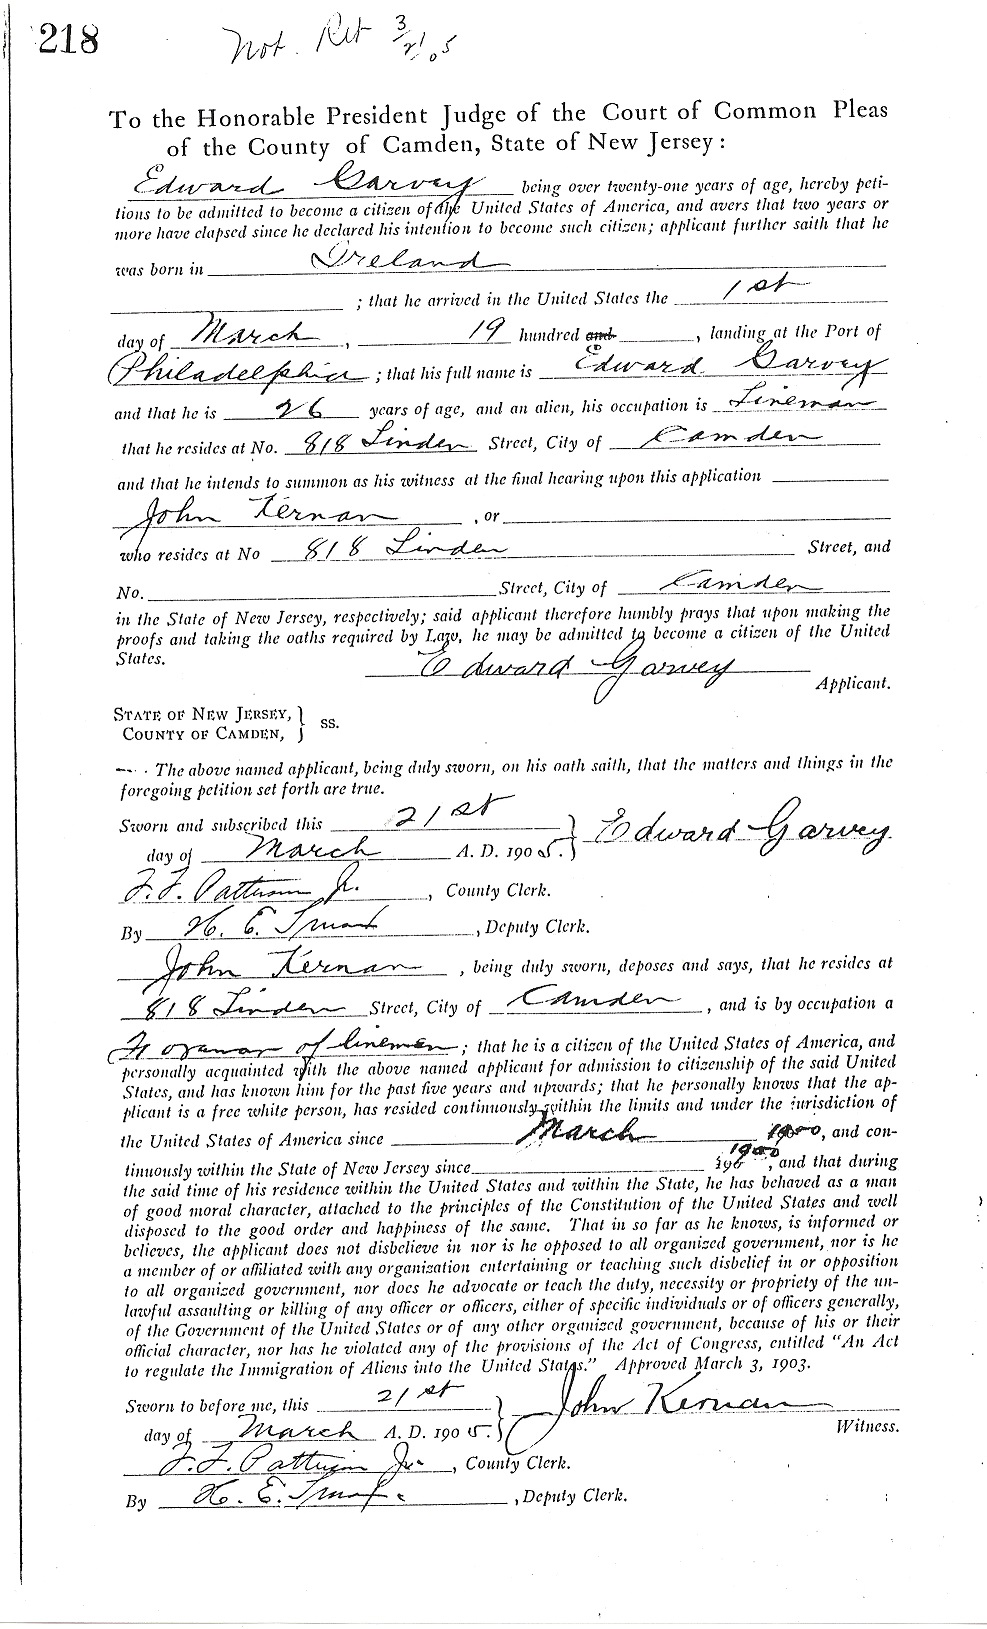 218
Not. Ret 3/21/05
To the Honorable President Judge of the Court of Common Pleas
of the County of Camden, State of New Jersey:
Edward Garvey being over twenty-one years of age, hereby peti-
tions to be admitted to become a citizen of the United States of America, and avers that two years or
more have elapsed since he declared his intention to become such citizen; applicant further saith that he
was born in Ireland
; that he arrived in the United States the 1st
day of March, 19 hundred and, landing at the Port of
Philadelphia; that his full name is Edward Garvey
and that he is 26 years of age, and an alien, his occupation is Lineman
that he resides at No. 818 Linden Street, City of Camden
and that he intends to summon as his witness at the final hearing upon this application
John Kernan, or
who resides at No 818 Linden Street, and
No. Street, City of Camden
in the State of New Jersey, respectively; said applicant therefore humbly prays that upon making the
proofs and taking the oaths required by Law, he may be admitted to become a citizen of the United
States. Edward Garvey
Applicant.
STATE OF NEW JERSEY, } ss.
COUNTY OF CAMDEN, }
The above named applicant, being duly sworn, on his oath saith, that the matters and things in the
foregoing petition set forth are true.
Sworn and subscribed this 21st } Edward Garvey
day of March A. D. 1905. }
F. F. Patterson Jr., County Clerk.
By H. E., Deputy Clerk.
John Kernan, being duly sworn, deposes and says, that he resides at
818 Linden Street, City of Camden, and is by occupation a
of linemen; that he is a citizen of the United States of America, and
personally acquainted with the above named applicant for admission to citizenship of the said United
States, and has known him for the past five years and upwards; that he personally knows that the ap-
plicant is a free white person, has resided continuously within the limits and under the jurisdiction of
the United States of America since March 1900, and con-
tinuously within the State of New Jersey since 1900, and that during
the said time of his residence within the United States and within the State, he has behaved as a man
of good moral character, attached to the principles of the Constitution of the United States and well
disposed to the good order and happiness of the same. That in so far as he knows, is informed or
believes, the applicant does not disbelieve in nor is he opposed to all organized government, nor is he
a member of or affiliated with any organization entertaining or teaching such disbelief in or opposition
to all organized government, nor does he advocate or teach the duty, necessity or propriety of the un-
lawful assaulting or killing of any officer or officers, either of specific individuals or of officers generally,
of the Government of the United States or of any other organized government, because of his or their
official character, nor has he violated any of the provisions of the Act of Congress, entitled "An Act
to regulate the Immigration of Aliens into the United States." Approved March 3, 1903.
Sworn to before me, this 21st } John Kernan
day of March A. D. 1905. } Witness.
F. F. Patterson Jr., County Clerk.
By H. E., Deputy Clerk.